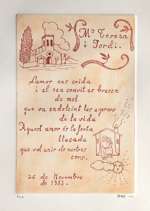 Mª Teresa
i Jordi.
L'amor ens crida
i el seu convit es bresca
de mel
que va endolcint les agrors
de la vida
Aquest amor és la festa
llaçada
que vol unir els nostres
cors.
26 de Novembre
de 1983.